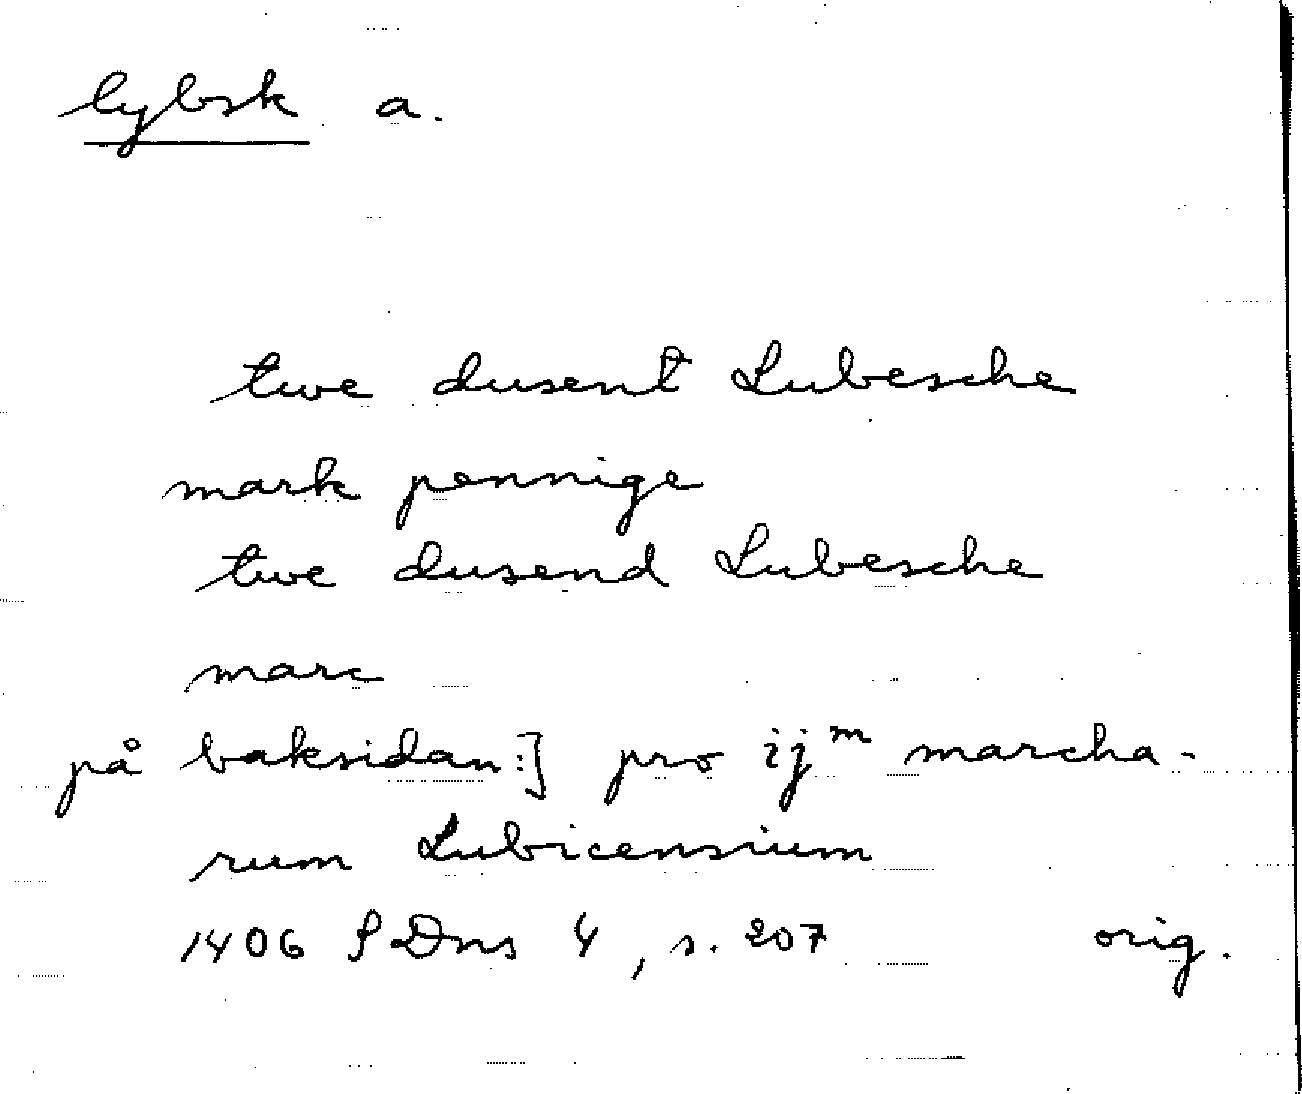 lybsk a.
twe dusent Lubesche
mark pennige
twe dusend Lubesche
marc
på baksidan:] pro ijᵐ marcha-
rum Lubicensium
1406 SDns 4, s. 207 orig.